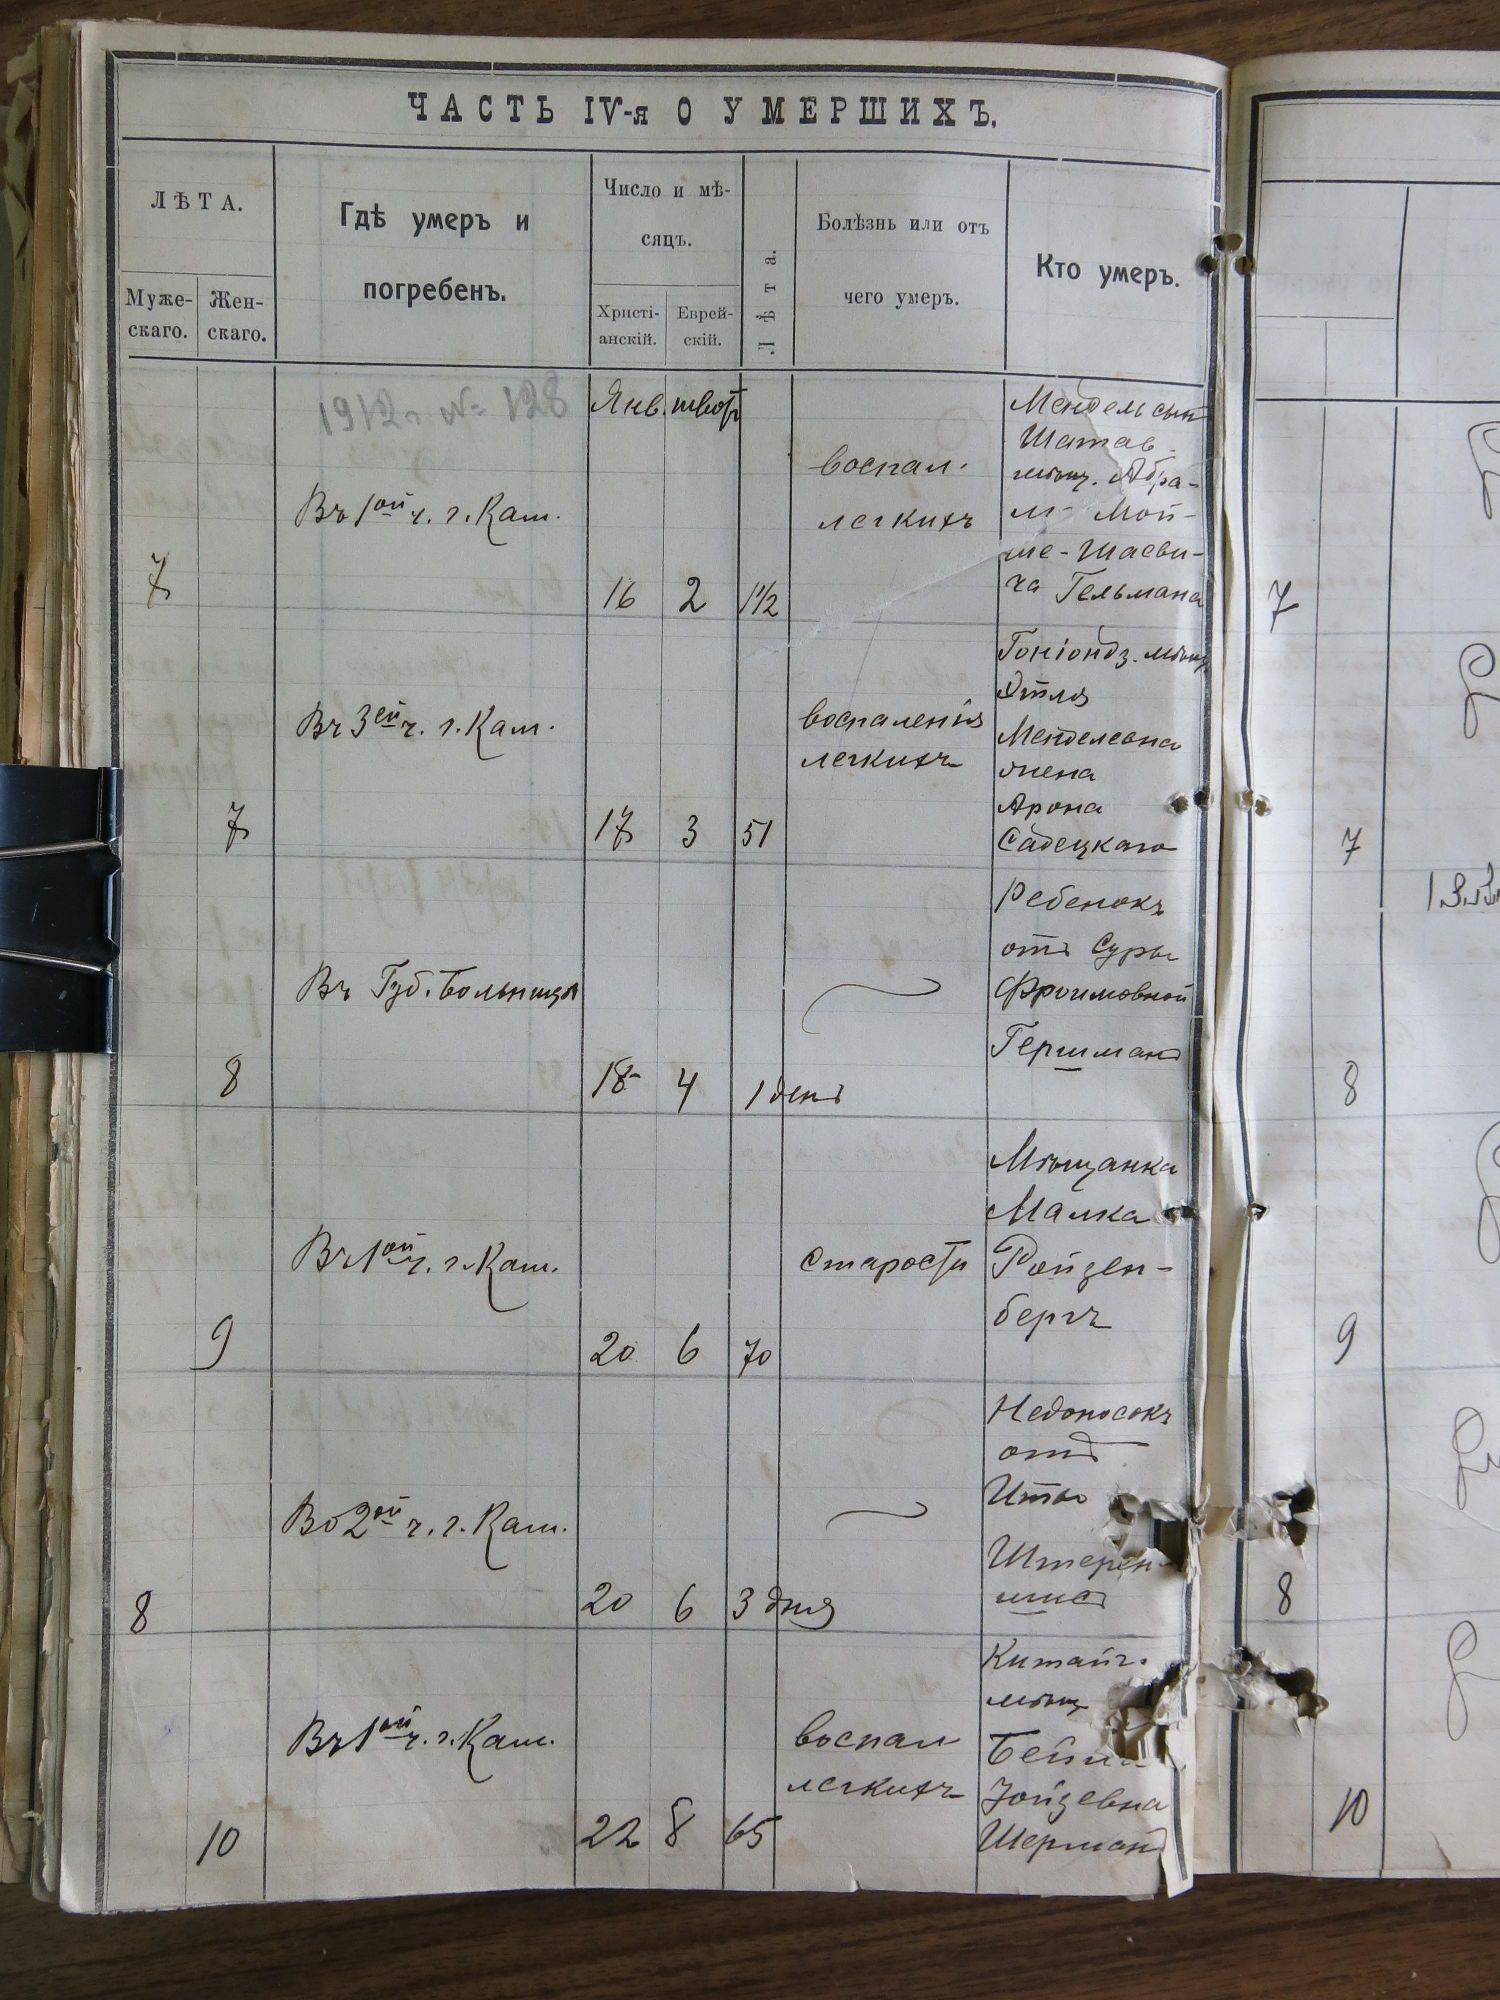 ЧАСТЬ IV-я О УМЕРШИХЪ.
ЛѢТА.
Муже-
скаго.
Жен-
скаго.
Гдѣ умеръ и
погребенъ.
Число и мѣ-
сяцъ.
Христі-
анскій.
Еврей-
скій.
Лѣта.
Болѣзнь или отъ
чего умеръ.
Кто умеръ.
1912 г № 128
Янв.
7
Въ 1ой ч. г. Кам.
16
2
1 1/2
воспал.
легкихъ
Мендель сын
Шатав.
мѣщ. Абра-
м- Мой-
ше-Шаеви-
ча Гельмана
7
7
Въ 3ей ч. г. Кам.
17
3
51
воспаленія
легкихъ
Гоніондз. мѣщ.
Этля
Менделевна
жена
Арона
Садецкаго
7
8
Въ Губ. Больницѣ
18
4
1 день
Ребенокъ
отъ Суры
Фроимовной
Гершманъ
8
9
Въ 1ой ч. г. Кам.
20
6
70
старости
Мѣщанка
Малка
Ройзен-
бергъ
9
8
Во 2ой ч. г. Кам.
20
6
3 дня
Недоносокъ
отъ
Иты
Штерен-
шисъ
8
10
Въ 1ой ч. г. Кам.
22
8
65
воспал
легкихъ
Китайг.
мѣщ
Зойзевна
Шерманъ
10